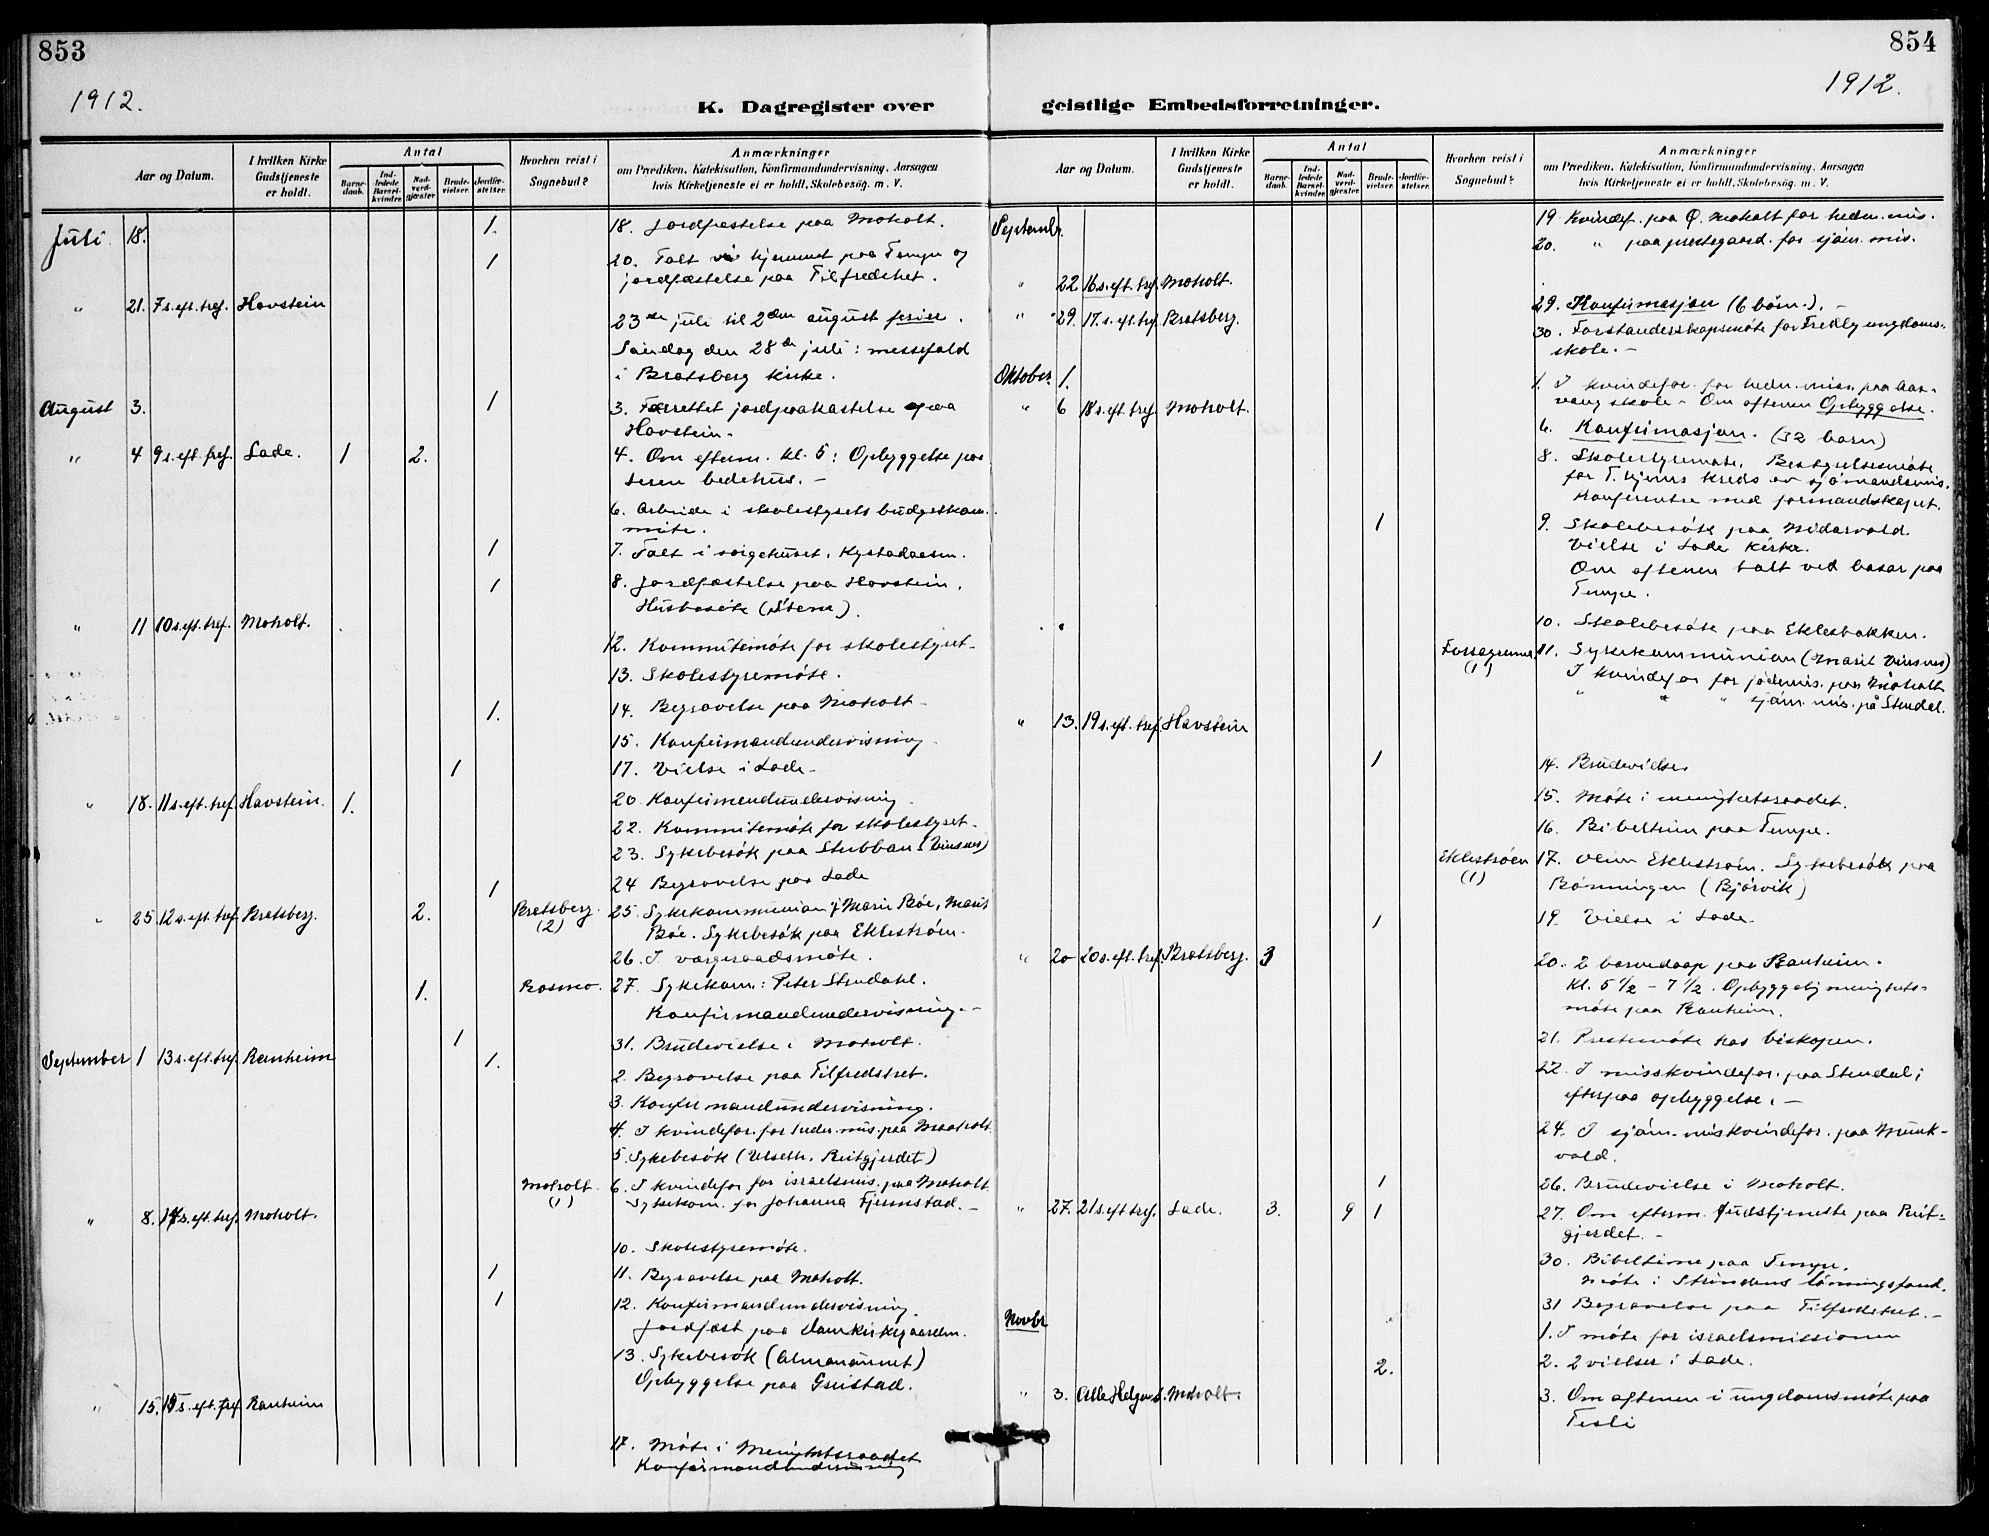 853
1912.
K. Dagregister over
Aar og Datum.
I hvilken Kirke Gudstjeneste er holdt.
Antal
Barnedaab.
Indledede Barselkvinder.
Nadverdgjæster.
Brudevielser.
Jordfæstelser.
Hvorhen reist i Sognebud?
Anmærkninger
om Prædiken, Katekisation, Konfirmandundervisning, Aarsagen
hvis Kirketjeneste ei er holdt, Skolebesög, m. V.
Juli 18. 1. 18. Jordfæstelse paa Moholt.
1 20. Talt i hjemmet paa Tempe og
jordfæstelse paa Tilfredshet.
" 21. 7 s. eft. tref. Havstein
23de juli til 2den august ferie.
Søndag den 28de juli: messefald
i Bratsberg kirke.
August 3. 1 3. Forrettet jordpaakastelse paa
Havstein.
" 4 9 s. eft. tref. Lade. 1 2. 4. Om efterm. kl. 5: Opbyggelse paa
bedehus. -
6. Arbeide i skolestyrets budgetkom-
mite.
1 7. Talt i sørgehuset,
1 8. Jordfæstelse paa Havstein.
Husbesök
" 11 10 s. eft. tref. Moholt.
12. Kommitemöte for skolestyret.
13. Skolestyremöte.
1. 14. Begravelse paa Moholt.
15. Konfirmandundervisning.
1 17. Vielse i Lade.
" 18. 11 s. eft. tref. Havstein. 1. 20. Konfirmandundervisning.
22. Kommitemöte for skolestyret.
23. Sykebesök paa Stubban (Vinsnes)
1 24 Begravelse paa Lade
" 25 12 s. eft. tref. Bratsberg. 2. Bratsberg. (2) 25. Sykekommunion f. Marie Böe, Marit
Böe. Sykebesök paa Eklestrøm.
26. I vergeraadsmöte.
1. 27. Sykekom: Peter Stendahl.
Konfirmandundervisning. -
1 31. Brudevielse i Moholt.
September 1 13 s. eft. tref. Ranheim 1. 2. Begravelse paa Tilfredshet.
3. Konfirmandundervisning.
4. I kvindefor. for hedn. mis. paa Moholt
5. Sykebesök (Ulseth, Reitgjerdet)
Moholt (1) 6. I kvindefor for israelsmis. paa Moholt
Sykekom. for Johanna Fjermstad. -
" 8. 14 s. eft. tref. Moholt.
10. Skolestyremöte.
1 11. Begravelse paa Moholt.
1 12. Konfirmandundervisning.
Jordfæst paa Domkirkegaarden.
13. Sykebesök
Opbyggelse paa
" 15. 15 s. eft. tref. Ranheim
17. Möte i Menighetsraadet
Konfirmandundervisning
854
1912.
geistlige Embedsforretninger.
Aar og Datum.
I hvilken Kirke Gudstjeneste er holdt.
Antal
Barnedaab.
Indledede Barselkvinder.
Nadverdgjæster.
Brudevielser.
Jordfæstelser.
Hvorhen reist i Sognebud?
Anmærkninger
om Prædiken, Katekisation, Konfirmandundervisning, Aarsagen
hvis Kirketjeneste ei er holdt, Skolebesög, m. V.
Septembr. 19 Kvindef. paa Ø. Moholt for hedn. mis.
20. " paa prestegaard. for sjöm. mis.
" 22 16 s. eft. tref. Moholt.
" 29. 17. s. eft. tref. Bratsberg. 29. Konfirmasjon (6 börn.). -
30. Forstanderskapsmöte for Fredly ungdoms-
skole. -
Oktober. 1. 1. I kvindefor. for hedn. miss. paa Aas-
vang skole - Om aftenen Opbyggelse.
" 6 18 s. eft. tref. Moholt. 6. Konfirmasjon. (32 barn)
8. Skolestyremöte. Bestyrelsesmöte
for T.hjems kreds av sjömandsmis.
Konferentse med formandskapet.
1 9. Skolebesök paa Nidarvold.
Vielse i Lade kirke.
Om aftenen talt ved basar paa
Tempe.
10. Skolebesök paa Eklesbakken.
11. Sykekommunion (Marit Vinsnes)
I kvindefor for jödemis. paa Moholt
" " " sjöm. mis. på Stendal.
" 13. 19 s. eft. tref. Havstein
1 14. Brudevielse
15. Möte i menighetsraadet.
16. Bibeltime paa Tempe.
Eklestrøen (1) 17. Sykebesök paa
(Björvik)
1 19. Vielse i Lade.
" 20 20 s. eft. tref. Bratsberg. 3 20. 2 barnedaap paa Ranheim.
Kl. 5 1/2 - 7 1/2. Opbyggelig menighets-
möte paa Ranheim.
21. Prestemöte hos biskopen.
22. I misskvindefor. paa Stendal;
efterpaa opbyggelse. -
24. I sjöm. miskvindefor. paa Munk-
vold.
1 26. Brudevielse i Moholt.
" 27. 21 s. eft tref. Lade. 3. 9 1 27. Om efterm. Gudstjeneste paa Reit-
gjerdet. -
30. Bibeltime paa Tempe.
Möte i Strindens lönningsfond.
31 Begravelse paa Tilfredshet. -
Novbr 1. I möte for israelsmissionen
2. 2. 2 vielser i Lade.
" 3. Alle Helgens d. Moholt. 3. Om aftenen i ungdomsmöte paa
Tesli